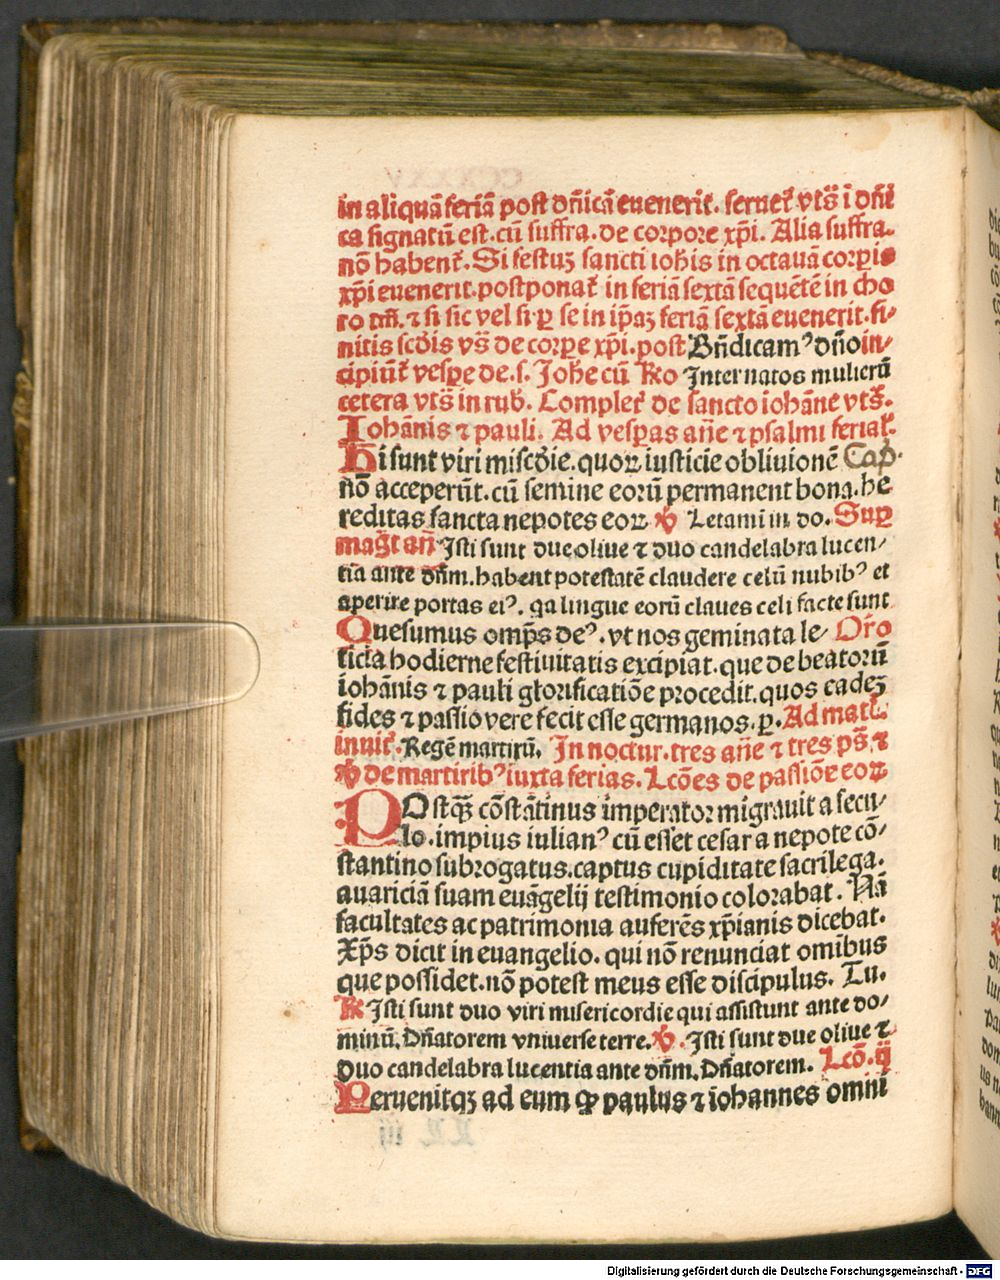 in aliquā feriā post dn̄icā euenerit. seruet᷑ vts̄ i dn̄i
ca signatū est. cū suffra. de corpore xp̄i. Alia suffra.
nō habent᷑. Si festuꝫ sancti ioh̄is in octauā corꝑis
xp̄i euenerit. postponat᷑ in feriā sextā sequētē in cho
ro nr̄i. ⁊ si sic vel si ꝑ se in ip̄aꝫ feriā sextā euenerit. fi⸗
nitis scd̄is vs̄ de corꝑe xp̄i. post Bn̄dicamꝰ dn̄o in⸗
cipiūt᷑ vesꝑe de. s. Joh̄e cū Ro Inter natos mulierū
cetera vts̄ in rub̄. Complet᷑ de sancto iohāne vts̄.
Iohānis ⁊ pauli. Ad vesꝑas añe ⁊ psalmi ferial᷑.
Hi sunt viri miscd̄ie. quoꝝ iusticie obliuionē Cap̄.
nō acceperūt. cū semine eorū permanent bona. he
reditas sancta nepotes eoꝝ ℣ Letamī in do. Suꝑ
mag̅t an̄ Isti sunt due oliue ⁊ duo candelabra lucen⸗
tia ante dn̄m. habent potestatē claudere celū nubibꝰ et
aperire portas eiꝰ. qa lingue eorū claues celi facte sunt
Quesumus omp̄s deꝰ. vt nos geminata le⸗ Oro
ticia hodierne festiuitatis excipiat. que de beatorū
iohānis ⁊ pauli glorificatiōe procedit. quos eadeꝫ
fides ⁊ passio vere fecit esse germanos. ꝑ. Ad mat᷑.
inuit᷑. Regē martirū. In noctur. tres añe ⁊ tres ps̄. ⁊
℣ de martiribꝰ iuxta ferias. Lcōes de passiōe eoꝝ
POstꝙ̄ cōstātinus imperator migrauit a secu⸗
lo. impius iulianꝰ cū esset cesar a nepote cō⸗
stantino subrogatus. captus cupiditate sacrilega.
auariciā suam euāgelij testimonio colorabat. Nā
facultates ac patrimonia auferēs xp̄ianis dicebat.
Xp̄s dicit in euangelio. qui nō renunciat omībus
que possidet. nō potest meus esse discipulus. Tu.
℟ Isti sunt duo viri misericordie qui assistunt ante do⸗
minū. Dn̄atorem vniuerse terre. ℣. Isti sunt due oliue ⁊
duo candelabra lucentia ante dn̄m. Dn̄atorem. Lcō. ij
Peruenitqꝫ ad eum ꝙ paulus ⁊ iohannes omni
Digitalisierung gefördert durch die Deutsche Forschungsgemeinschaft - DFG